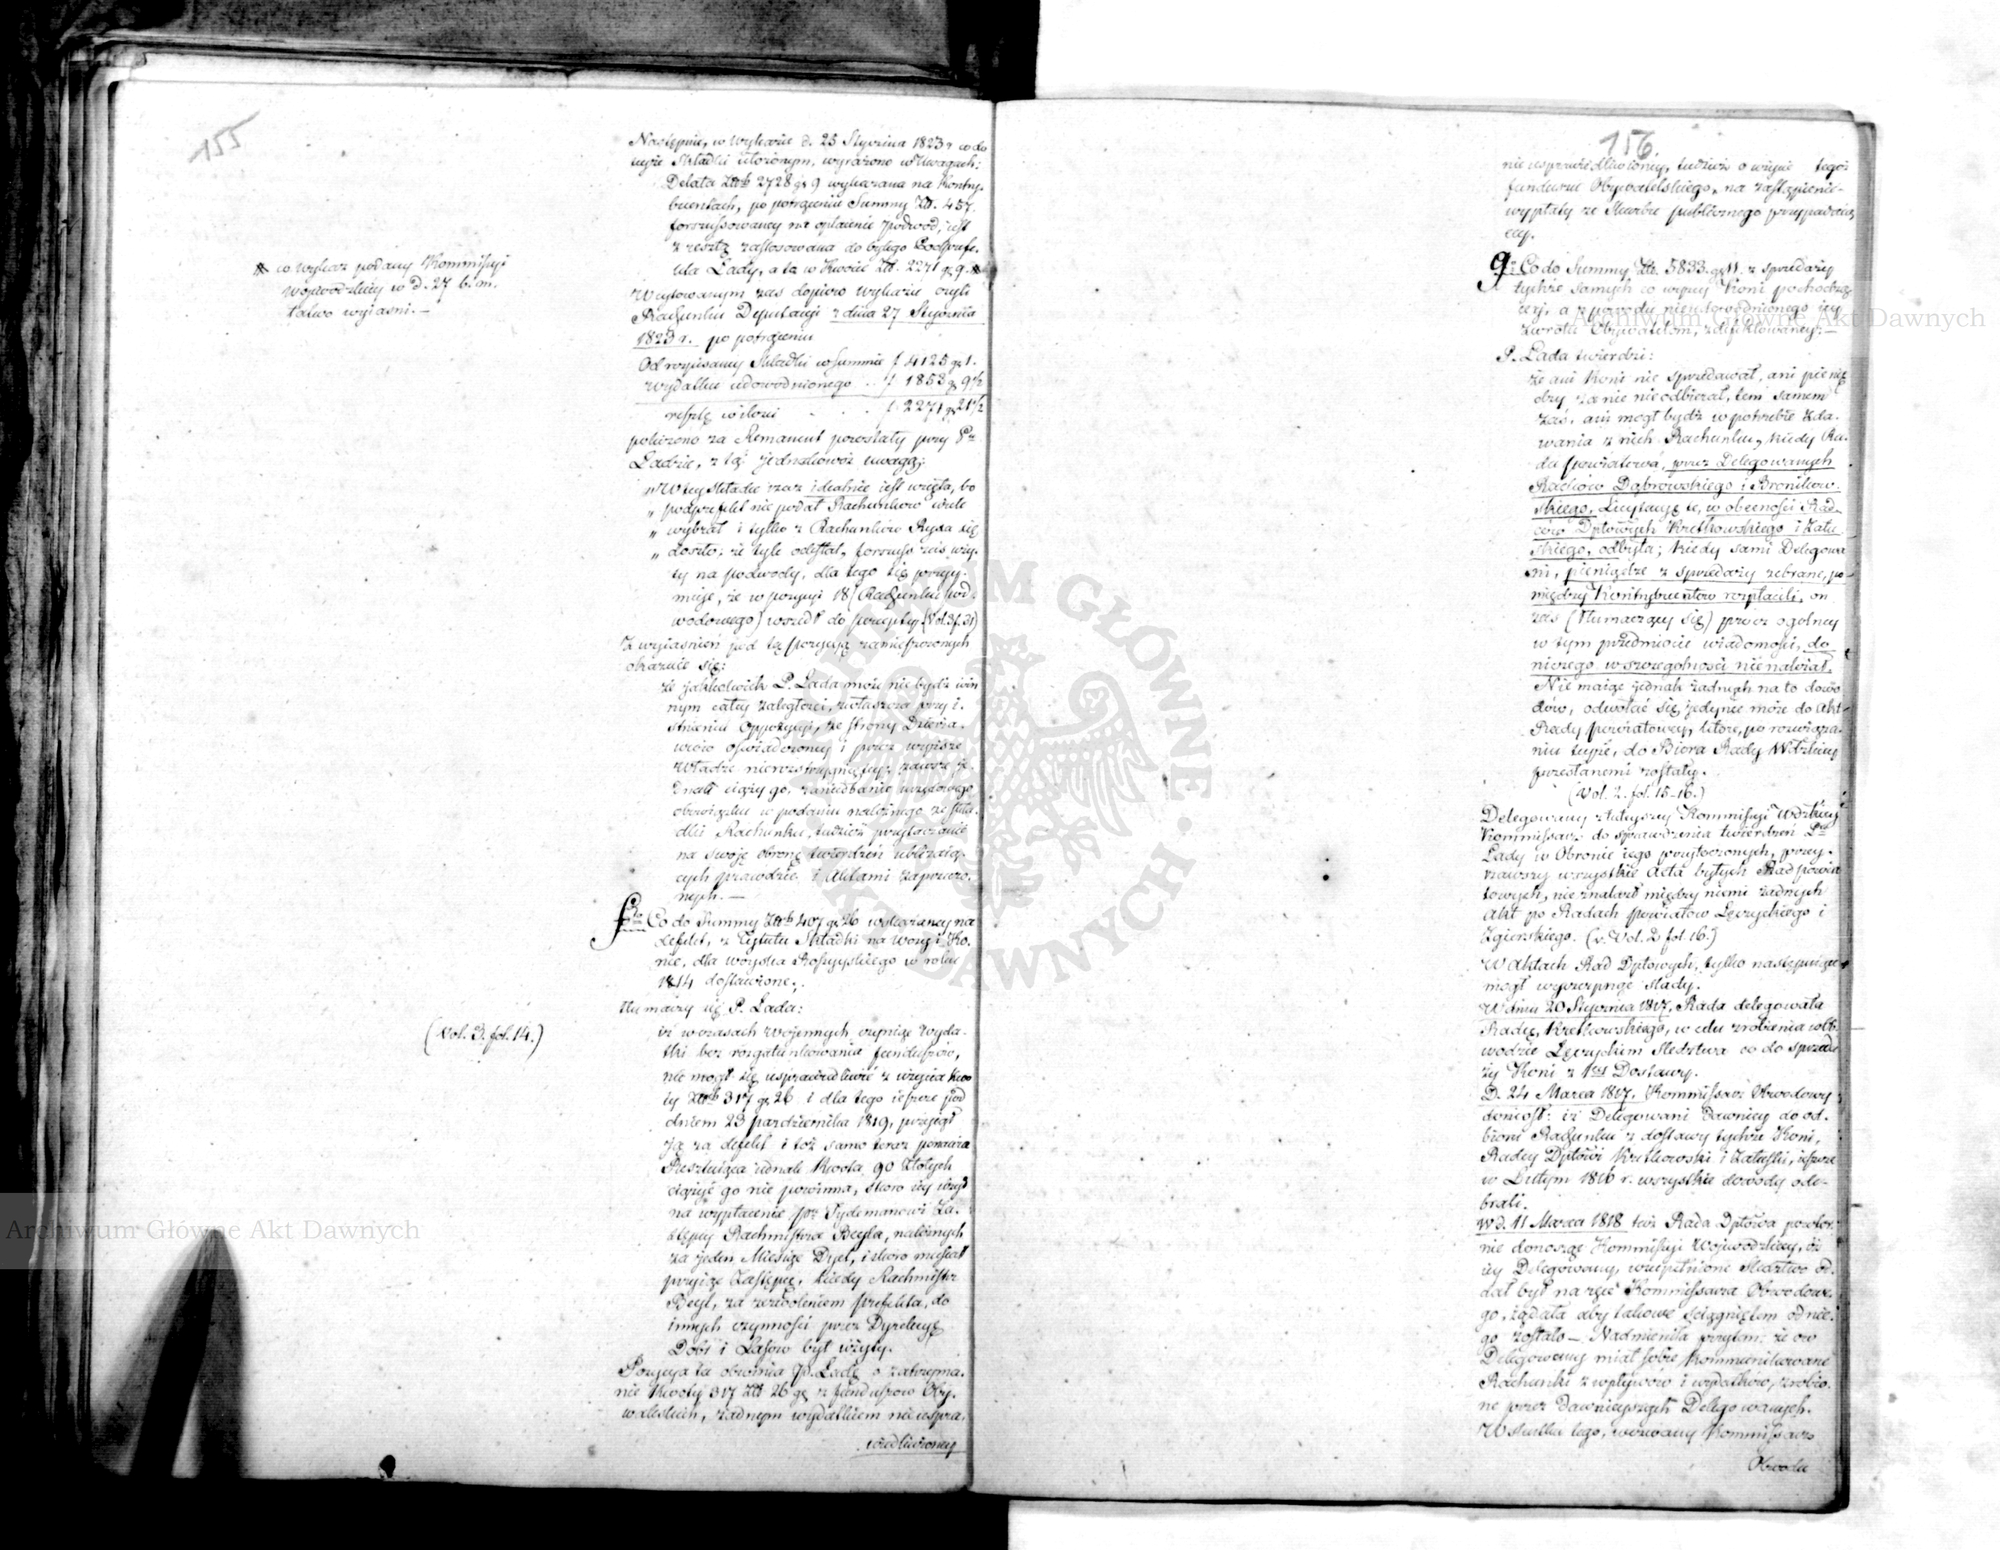 155
Następnie, w wykazie d. 25 Stycznia 1823 r co do
teyże Składki ułożonym, wyrażono w Uwagach:
Delata Złt 2728 gr 9 wykazana na Kontry-
buentach, po potrąceniu Summy Zł. 457.
forszussowaney na opłacenie podwód, jest
z resztą zastosowana do byłego Podprefe-
kta Łady, a ta w Kwocie Zł. 2271 gr 9.
co wykaz podany Kommissyi
Wojewódzkiey w d. 27 b. m.
łatwo wyjaśni.—
W cytowanym zaś dopiero wykazie czyli
Rachunku Deputacyi z dnia 27 Stycznia
1823 r. po potrąceniu
Od rozpisaney Składki w Summie f 4125 gr 1.
wydatku udowodnionego .. f 1853 gr 9½
resztę w ilości . . . f. 2271 gr 21½
policzono za Remanent pozostały przy P.
Ładzie, z tą jednakowoż uwagą:
„W tey składce rzecz idealnie jest wzięta, bo
„ podprefekt nie podał Rachunków wiele
„ wybrał i tylko z Rachunków Ryxa się
„ doszło, że tyle odesłał, forszuss zaś wzię-
ty na podwody, dla tego się przyj-
muje, że w pozycyi 18 (Rachunku
wodowego) wszedł do percepty. (Vol. 3 f. 31)
Z wyjaśnień pod tą pozycyą zamieszczonych
okazuie się:
że jakkolwiek P. Łada może nie bydź win
nym całey zaległości, zwłaszcza przy i-
stnieniu Oppozycyi, ze strony Dzieria-
wców oświadczoney i przez wyższe
Władze nierozstrzygniętey, zawsze je-
dnak ciąży go zaniedbanie urzędowego
obowiązku w podaniu należnego ze skła-
dki Rachunku, tudzież przytaczanie
na swoję obronę twierdzeń ubliżaią-
cych prawdzie i Aktami zaprzeczo-
nych.—
Co do Summy Złt 407 gr 26 wykazaney na
defekt, z Tytułu Składki na Wozy i Ko-
nie, dla woyska Rossyyskiego w roku
1814 dostawione,
tłumaczy się P. Łada:
(Vol. 3. fol. 14.)
iż w czasach wojennych czyniąc wyda-
tki bez rozgatunkowania funduszów,
nie mogł się usprawiedliwić z użycia kwo
ty Złt 317 gr 26 i dla tego jeszcze pod
dniem 23 października 1819, przyjął
ją za defekt i toż samo teraz ponawia
Resztująca jednak kwota 90 Złotych
ciążyć go nie powinna, skoro iey użył
na wypłacenie pr Sydemanowi Za-
stępcy Rachmistrza Beyla, należnych
za jeden Miesiąc Dyet, i skoro musiał
przyjąć Zastępcę, kiedy Rachmistrz
Beyl, za zezwoleniem Prefekta, do
innych czynności przez Dyrekcyę
Dóbr i Lasów był użyty.
Pozycya ta obwinia P. Ładę o zatrzyma-
nie Kwoty 317 Złt 26 gr z funduszów Oby-
watelskich, żadnym wydatkiem nieuspra-
wiedliwioney
156
nie usprawiedliwioney, tudzież o użycie tegoż
funduszu Obywatelskiego, na zastąpienie
wypłaty ze Skarbu publicznego przypadaią
cey.
9. Co do Summy Zł. 5833. gr 11. z sprzedaży
tychże samych co wyżey Koni pochodzą
cey, a z powodu nieudowodnionego iey
zwrotu Obywatelom, zdefektowaney:—
P. Łada twierdzi:
że ani Koni nie sprzedawał, ani pienię
dzy za nie nieodbierał, tem samem
zaś, ani mogł bydź w potrzebie zda-
wania z nich Rachunku, kiedy Ra-
da powiatowa, przez Delegowanych
Radców Dąbrowskiego i Bronikow-
skiego, Licytacyę tę, w obecności Rad-
ców Dptowych Kretkowskiego i Zału-
skiego, odbyła; kiedy sami Delegowa
ni, pieniądze z sprzedaży zebrane, po-
między Kontrybuentów rozpłacili, on
zaś (tłumaczący się) prócz ogólney
w tym przedmiocie wiadomości, do
niczego w szczególności nienależał.
Nie maiąc jednak żadnych na to dowo
dów, odwołać się jedynie może do Akt
Rady powiatowey, które, po rozwiąza-
niu teyże, do Biora Rady Wdzkiey
przesłanemi zostały.
(Vol. 2. fol. 15-16.)
Delegowany z tuteyszey Kommissyi Wdzkiey
Kommissarz do sprawdzenia twierdzeń P.
Łady w Obronie jego przytoczonych, przey-
rzawszy wszystkie Acta byłych Rad powia
towych, nie znalazł między niemi żadnych
Akt po Radach powiatów Łęczyckiego i
Zgierskiego. (v. Vol. 2 fol. 16.)
W Aktach Rad Dptowych, tylko następujące
mogł wyczerpnąć ślady.
W dniu 20 Stycznia 1817, Rada delegowała
Radcę, Kretkowskiego, w celu zrobienia w Ob-
wodzie Łęczyckim Śledztwa co do sprzeda
ży Koni z 1szey Dostawy.
D. 24 Marca 1817, Kommissarz Obwodowy
doniósł: iż Delegowani Dawniey do od-
bioru Rachunku z dostawy tychże Koni,
Radcy Dptowi Kretkowski i Załuski, jeszcze
w Lutym 1816 r. wszystkie dowody ode-
brali.
W d. 11 Marca 1818 taż Rada Dptowa powtór-
nie donosząc Kommissyi Wojewódzkiey, iż
iey Delegowany, uzupełnione Śledztwo od-
dał był na ręce Kommissarza Obwodowe-
go, żądała aby takowe ściągniętem od nie-
go zostało— Nadmieniła przytem: że ów
Delegowany miał sobie kommunikowane
Rachunki z wpływów i wydatków, zrobio-
ne przez Dawnieyszych Delegowanych.
W skutku tego, wezwany Kommissarz
Obwodu